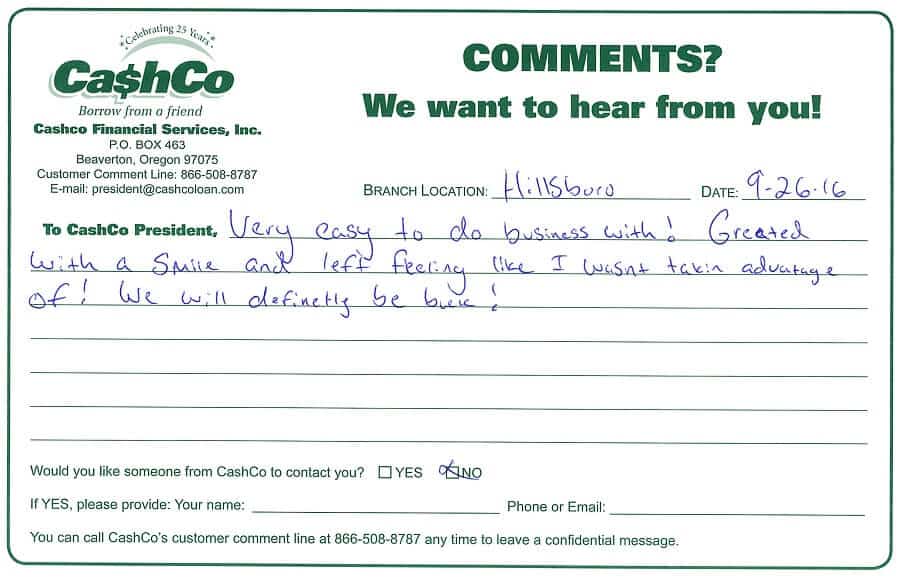 Celebrating 25 Years
COMMENTS?
Ca$hCo
We want to hear from you!
Borrow from a friend
Cashco Financial Services, Inc.
P.O. BOX 463
Beaverton, Oregon 97075
Customer Comment Line: 866-508-8787
E-mail: president@cashcoloan.com
BRANCH LOCATION: Hillsboro DATE: 9-26-16
To CashCo President, Very easy to do business with! Greated
with a smile and left feeling like I wasnt takin advantage
of! We will definetly be back!
Would you like someone from CashCo to contact you? YES NO
If YES, please provide: Your name: Phone or Email:
You can call CashCo's customer comment line at 866-508-8787 any time to leave a confidential message.